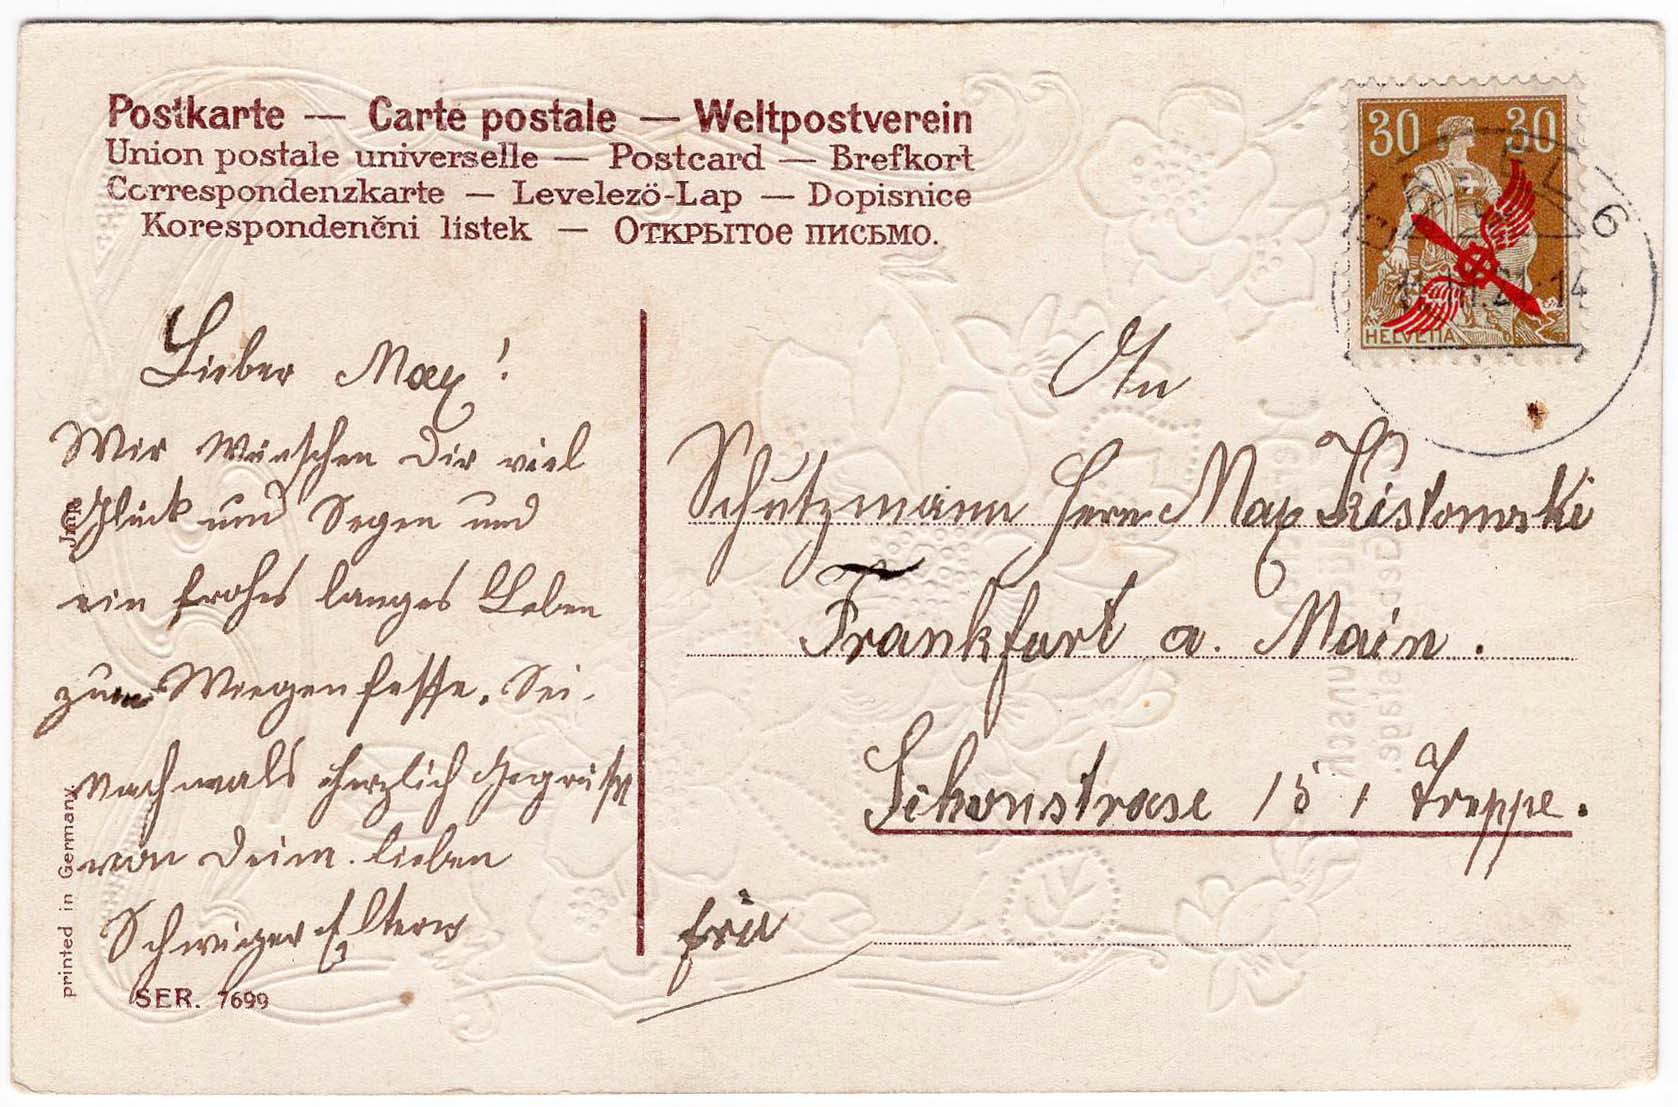 Postkarte — Carte postale — Weltpostverein
Union postale universelle — Postcard — Brefkort
Correspondenzkarte — Levelező-Lap — Dopisnice
Korespondenčni listek — Открытое письмо.
30 30
HELVETIA
BASEL 6
Lieber Max!
Wir wünschen Dir viel
Glück und Segen und
ein frohes langes Leben
zum Wiegenfeste. Sei
nochmals herzlich gegrüßt
von Dein. lieben
Schwieger Eltern
An
Schutzmann Herrn Max Kistowski
Frankfurt a. Main.
Schonstrase 15 1 Treppe.
printed in Germany
SER. 7699